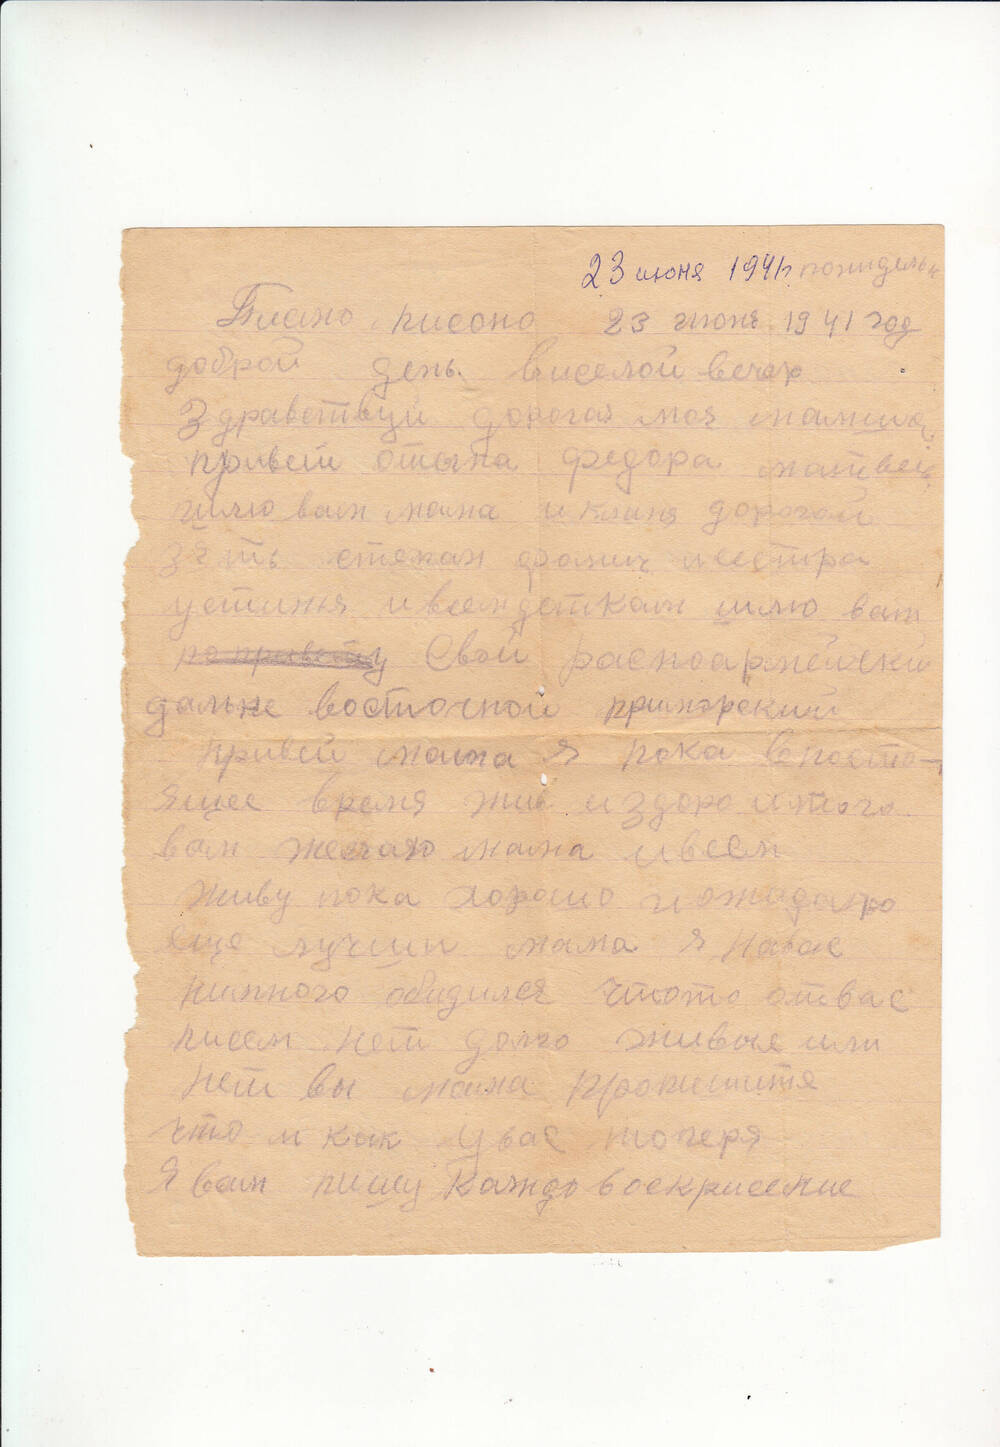 23 июня 1941г понидельн
Писано 23 июня 1941 год
доброй день виселой вечер
Здравствуй дорогая моя мамша
привет отына федора матвеи
шлю вам мама и кланя дорогой
зять степан фомич исестра
устинья ивсемдеткам шлю вам
по привету Свой расноармейский
дальне восточной приморский
привет мама я пока внасто-
ящее время жив издоро итого
вам желаю мама ивсем
живу пока хорошо и ожидаю
еще лучши мама я навас
нимного обидился чтото отвас
писем нет долго живые или
нет вы мама пропишитя
что и как увас топеря
Я вам пишу каждо воскрисение